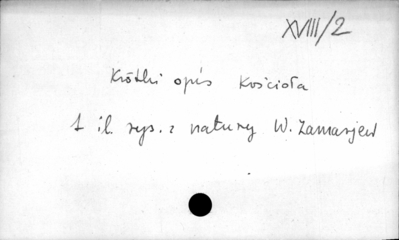 XVIII/2
Krótki opis Kościoła
1 il. rys. z natury W. Zamarjew